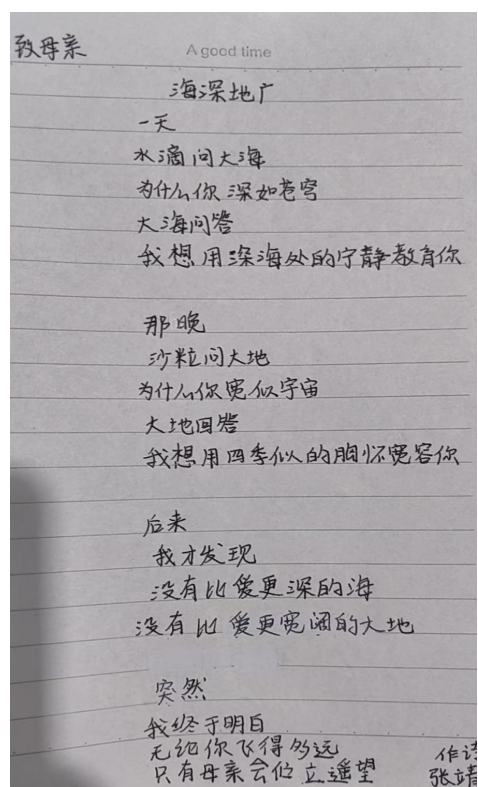 致母亲
A good time
海深地广
一天
水滴问大海
为什么你深如苍穹
大海问答
我想用深海处的宁静教育你
那晚
沙粒问大地
为什么你宽似宇宙
大地回答
我想用四季似的胸怀宽容你
后来
我才发现
没有比爱更深的海
没有比爱更宽阔的大地
突然
我终于明白
无论你飞得多远
只有母亲会伫立遥望
作诗
张靖